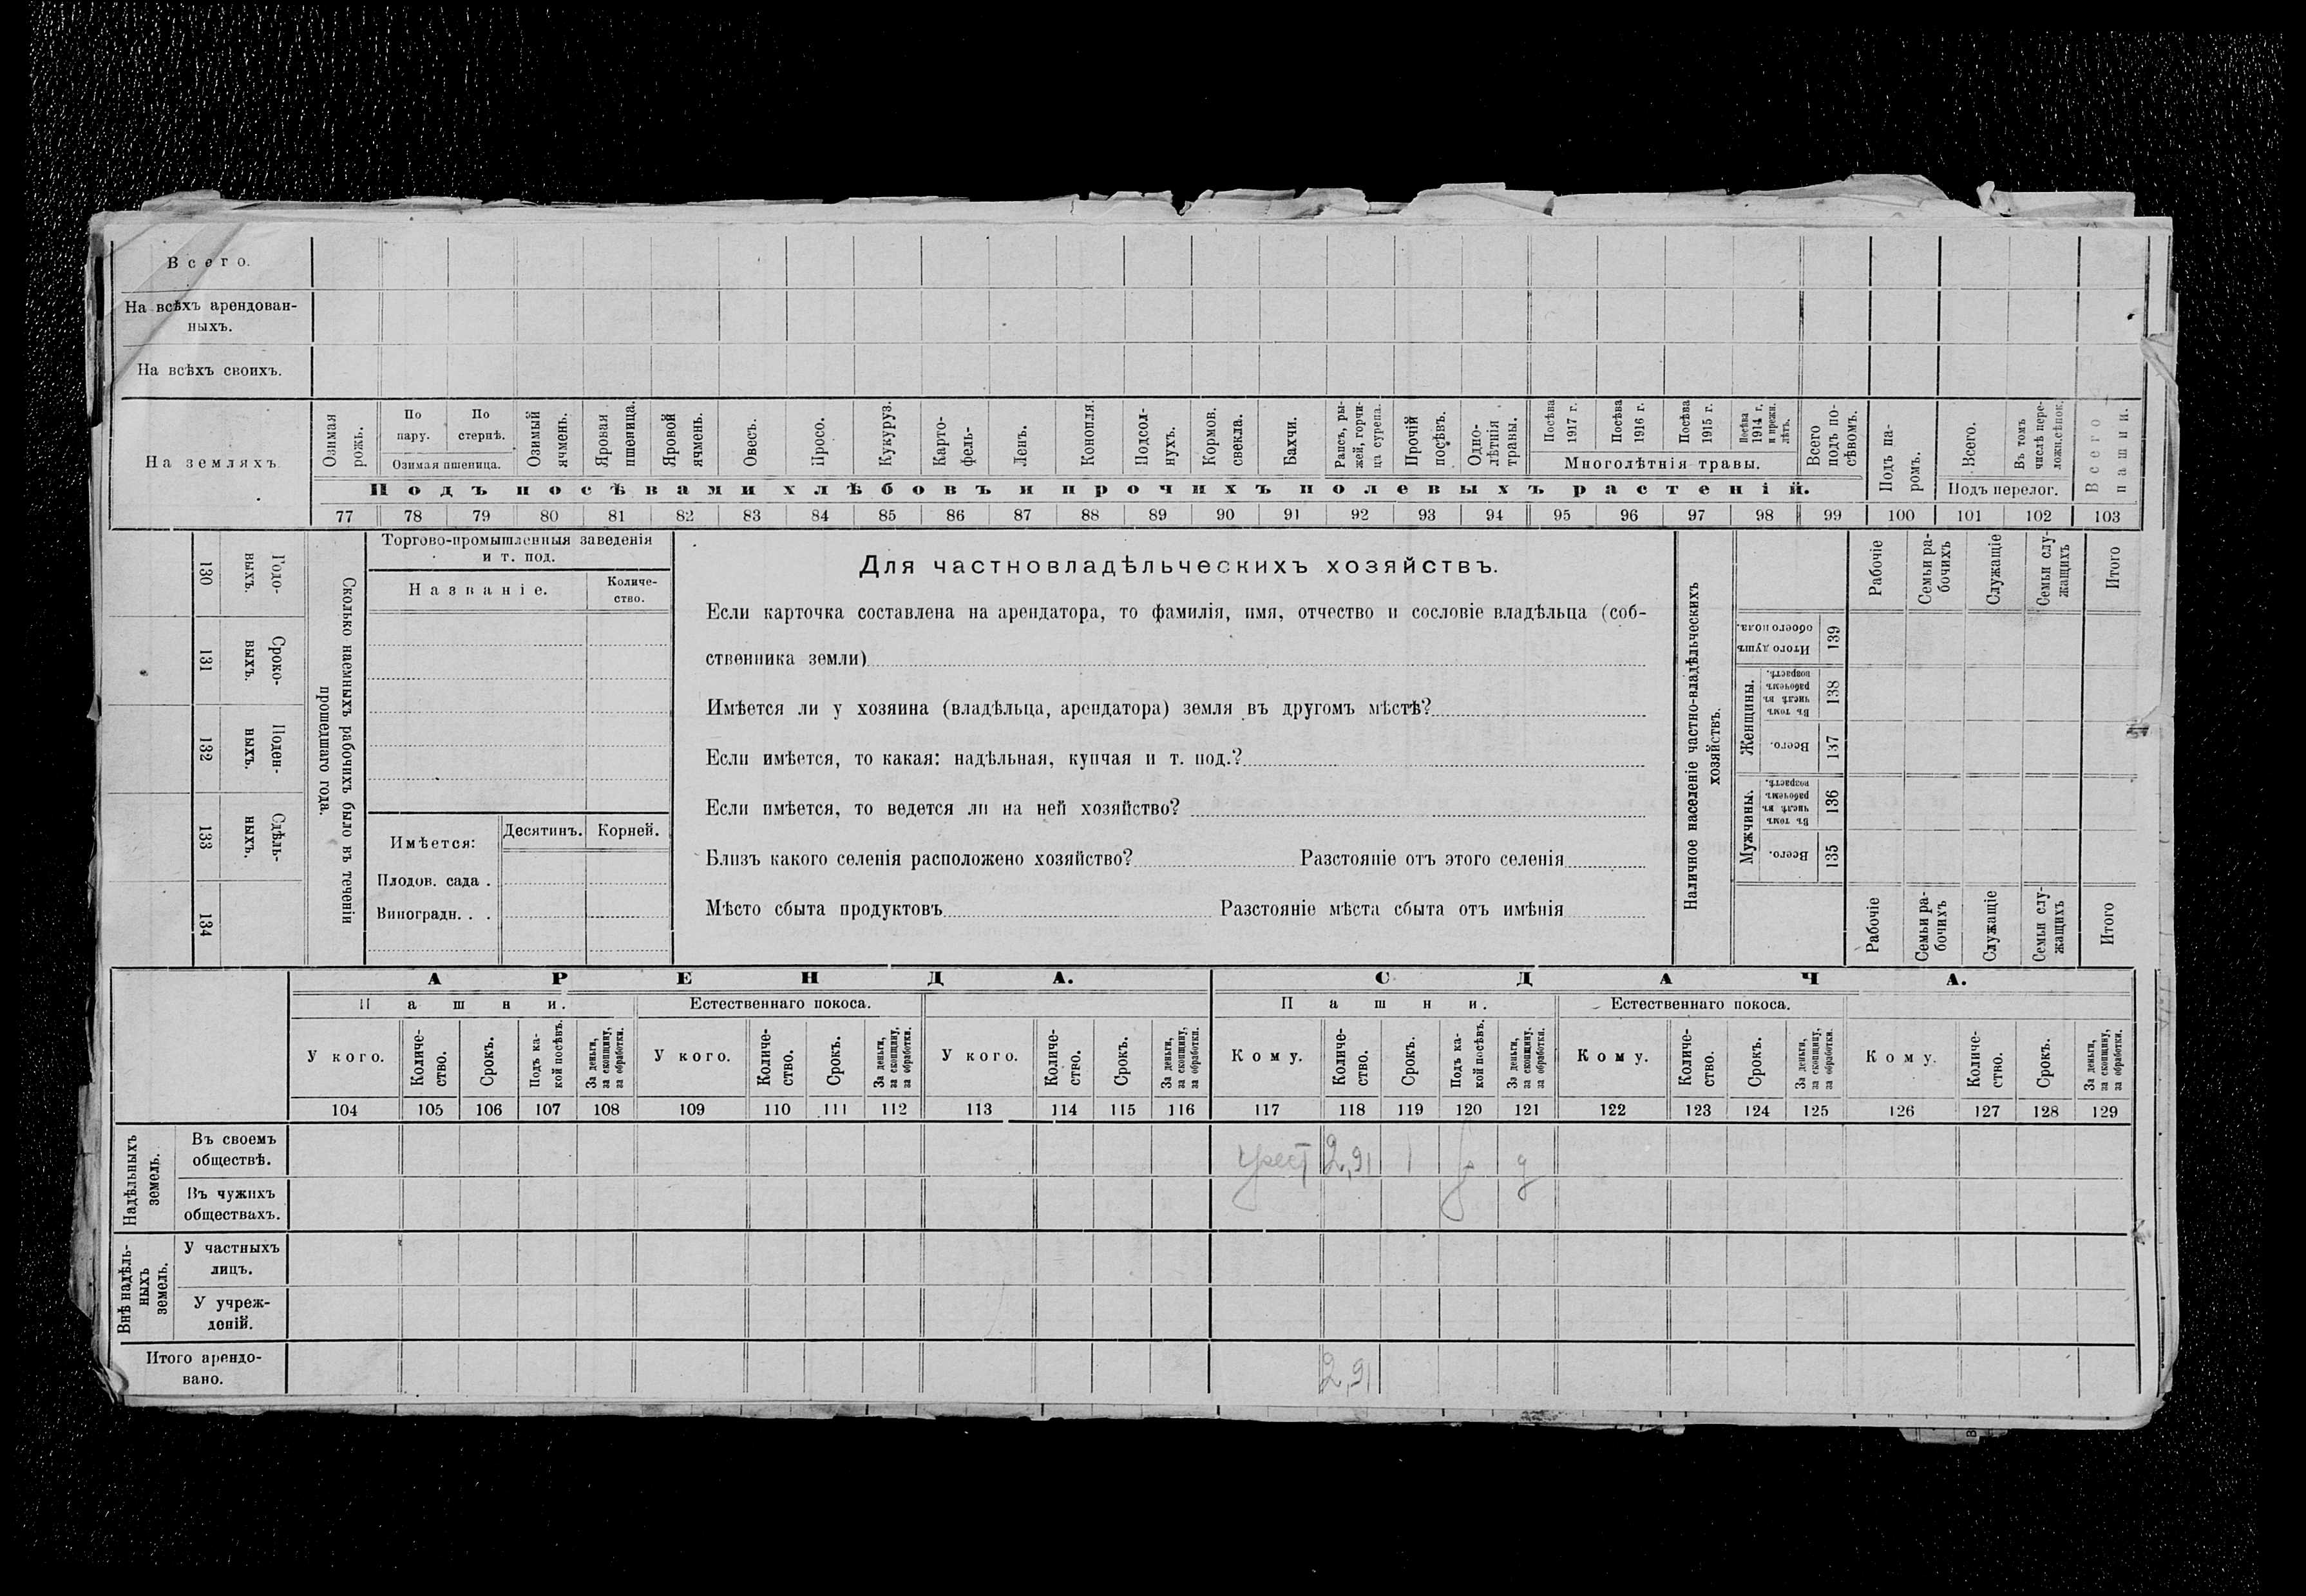 Всего.
На всѣхъ арендован-
ныхъ.
На всѣхъ своихъ.
На земляхъ
Озимая рожь.
По пару.
По стернѣ.
Озимая пшеница.
Озимый ячмень.
Яровая пшеница.
Яровой ячмень.
Овесъ.
Просо.
Кукуруз.
Карто-
фель-
Ленъ.
Конопля.
Подсол-
нухъ.
Кормов.
свекла.
Бахчи.
Рапсъ, ры-
жей, горчи-
ца сурепа.
Прочій
посѣвъ.
Одно-
лѣтнія
травы.
Посѣва
1917 г.
Посѣва
1916 г.
Посѣва
1915 г.
Посѣва
1914 г.
и прежн.
лѣтъ.
Многолѣтнія травы.
Всего
подъ по-
сѣвомъ.
Подъ па-
ромъ.
Всего.
Въ томъ
числѣ пере-
Подъ перелог.
Всего
пашни.
Подъ посѣвами хлѣбовъ и прочихъ полевыхъ растеній.
77 78 79 80 81 82 83 84 85 86 87 88 89 90 91 92 93 94 95 96 97 98 99 100 101 102 103
130
Годо-
выхъ.
131
Сроко-
выхъ.
132
Поден-
ныхъ.
133
Сдѣль-
ныхъ.
134
Сколько наемныхъ рабочихъ было въ теченіи
прошедшаго года.
Торгово-промышленныя заведенія
и т. под.
Названіе.
Количе-
ство.
Имѣется:
Десятинъ.
Корней.
Плодов. сада .
Виноградн. . .
Для частновладѣльческихъ хозяйствъ.
Если карточка составлена на арендатора, то фамилія, имя, отчество и сословіе владѣльца (соб-
ственника земли)
Имѣется ли у хозяина (владѣльца, арендатора) земля въ другомъ мѣстѣ?
Если имѣется, то какая: надѣльная, купчая и т. под.?
Если имѣется, то ведется ли на ней хозяйство?
Близъ какого селенія расположено хозяйство? Разстояніе отъ этого селенія
Мѣсто сбыта продуктовъ Разстояніе мѣста сбыта отъ имѣнія
Наличное населеніе частно-владѣльческихъ
хозяйствъ.
Итого душъ
обоего пола.
139
Женщины.
Въ томъ
числѣ въ
рабочемъ
возрастѣ.
138
Всего.
137
Мужчины.
Въ томъ
числѣ въ
рабочемъ
возрастѣ.
136
Всего.
135
Рабочіе
Семьи ра-
бочихъ
Служащіе
Семьи слу-
жащихъ
Итого
Рабочіе
Семьи ра-
бочихъ
Служащіе
Семьи слу-
жащихъ
Итого
АРЕНДА.
СДАЧА.
Пашни.
Естественнаго покоса.
Пашни.
Естественнаго покоса.
У кого.
Количе-
ство.
Срокъ.
Подъ ка-
кой посѣвъ.
За деньги,
за скопщину,
за обработки.
У кого.
Количе-
ство.
Срокъ.
За деньги,
за скопщину,
за обработки.
У кого.
Количе-
ство.
Срокъ.
За деньги,
за скопщину,
за обработки.
Кому.
Количе-
ство.
Срокъ.
Подъ ка-
кой посѣвъ.
За деньги,
за скопщину,
за обработки.
Кому.
Количе-
ство.
Срокъ.
За деньги,
за скопщину,
за обработки.
Кому.
Количе-
ство.
Срокъ.
За деньги,
за скопщину,
за обработки.
104 105 106 107 108 109 110 111 112 113 114 115 116 117 118 119 120 121 122 123 124 125 126 127 128 129
Надѣльныхъ
земель.
Въ своемъ
обществѣ.
2,91 1
Въ чужихъ
обществахъ.
Внѣ надѣль-
ныхъ
земель.
У частныхъ
лицъ.
У учреж-
деній.
Итого арендо-
вано.
2,91